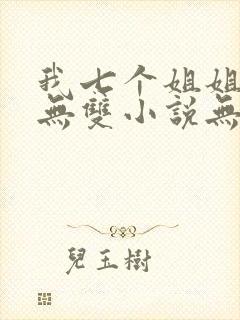 我七个姐姐
無雙小説無
兒玉樹